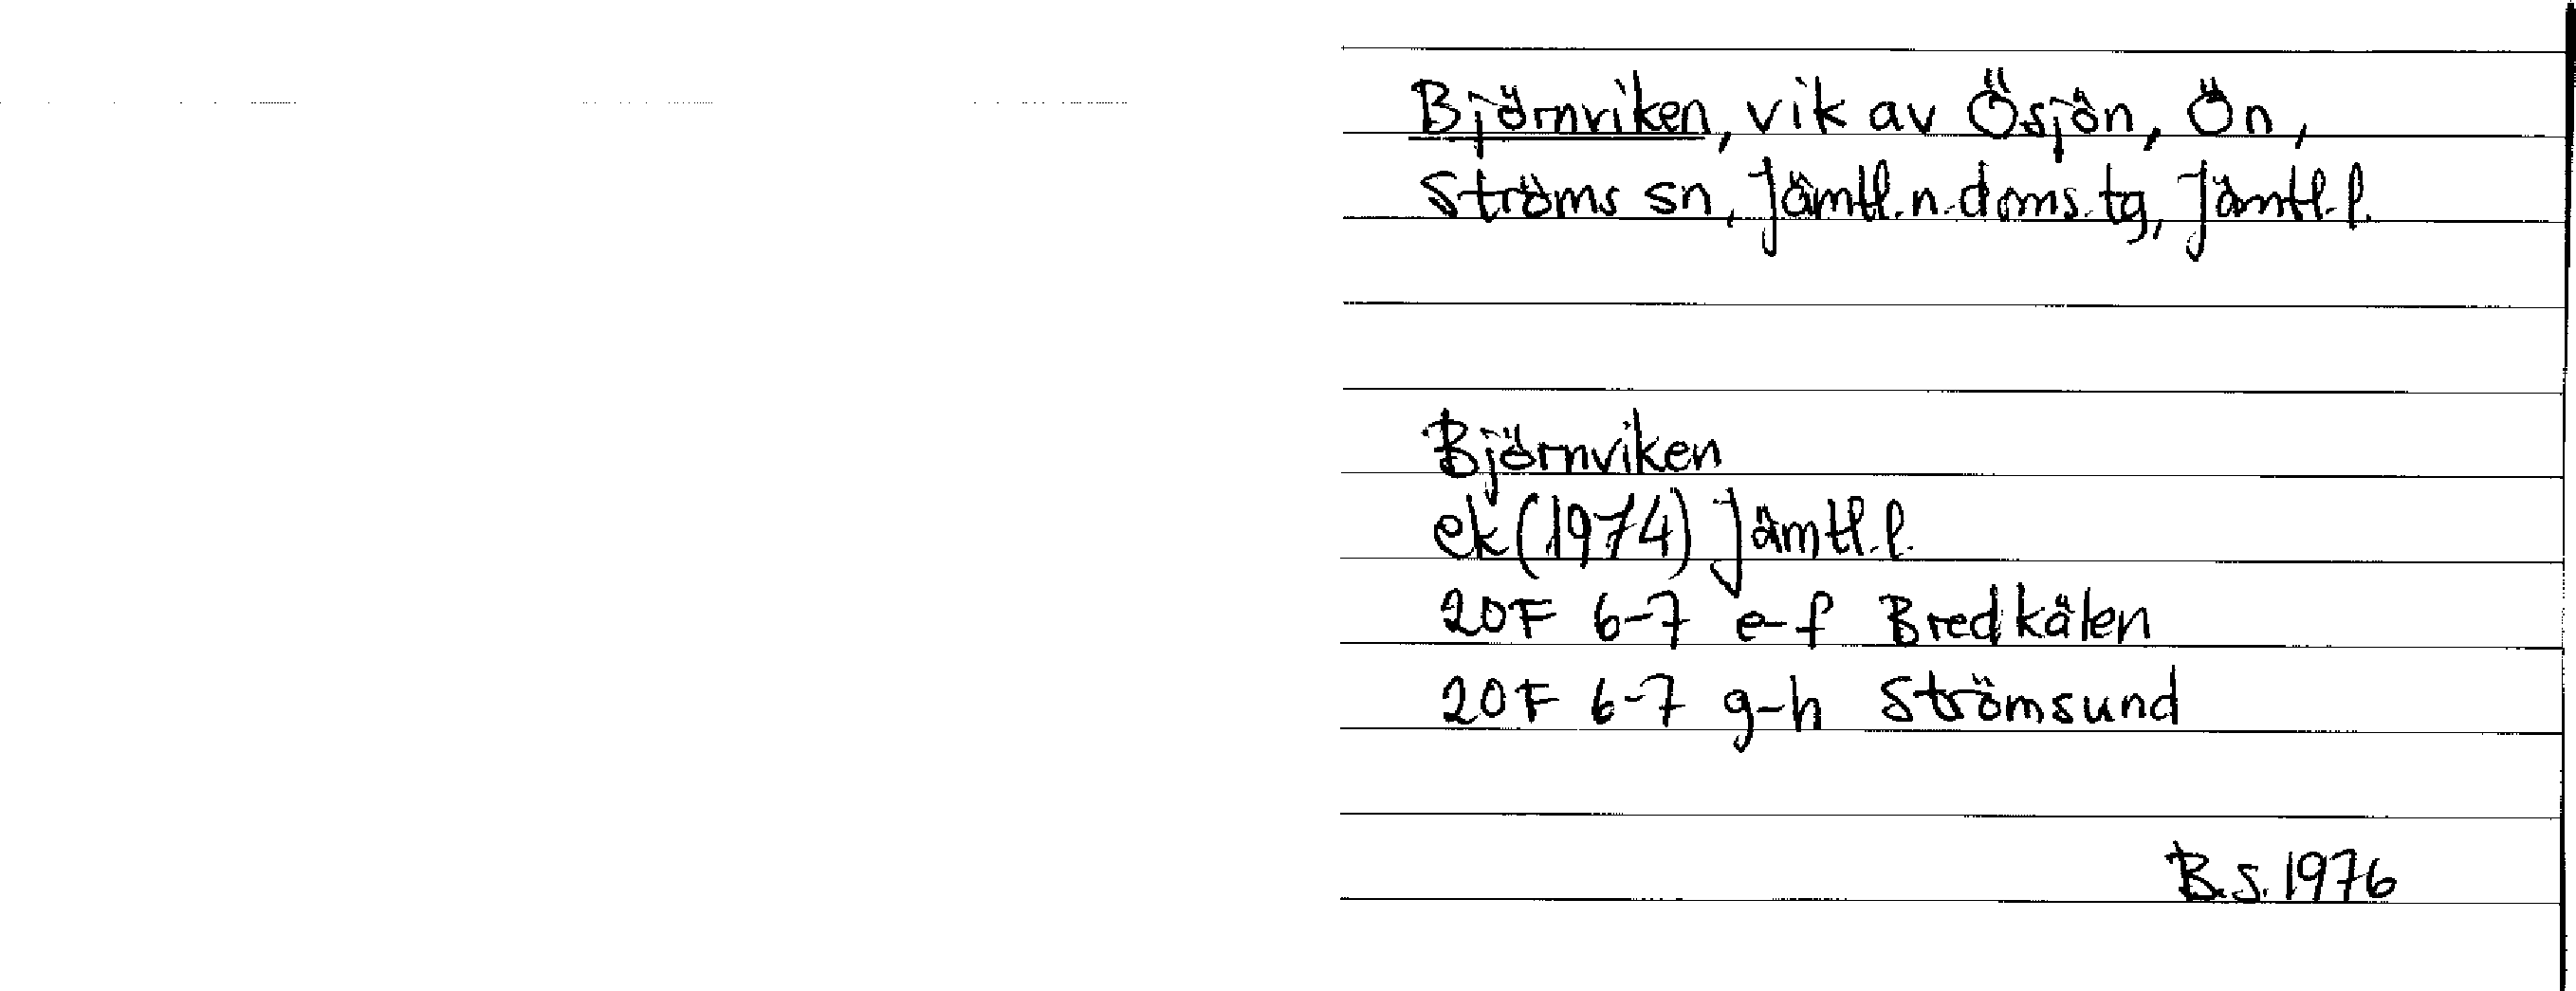 Björnviken, vik av Ösjön, Ön,
Ströms sn, Jämtl. n. doms. tg, Jämtl. l.
Björnviken
ek (1974) Jämtl. l.
20F 6-7 e-f Bredkälen
20F 6-7 g-h Strömsund
B.S. 1976